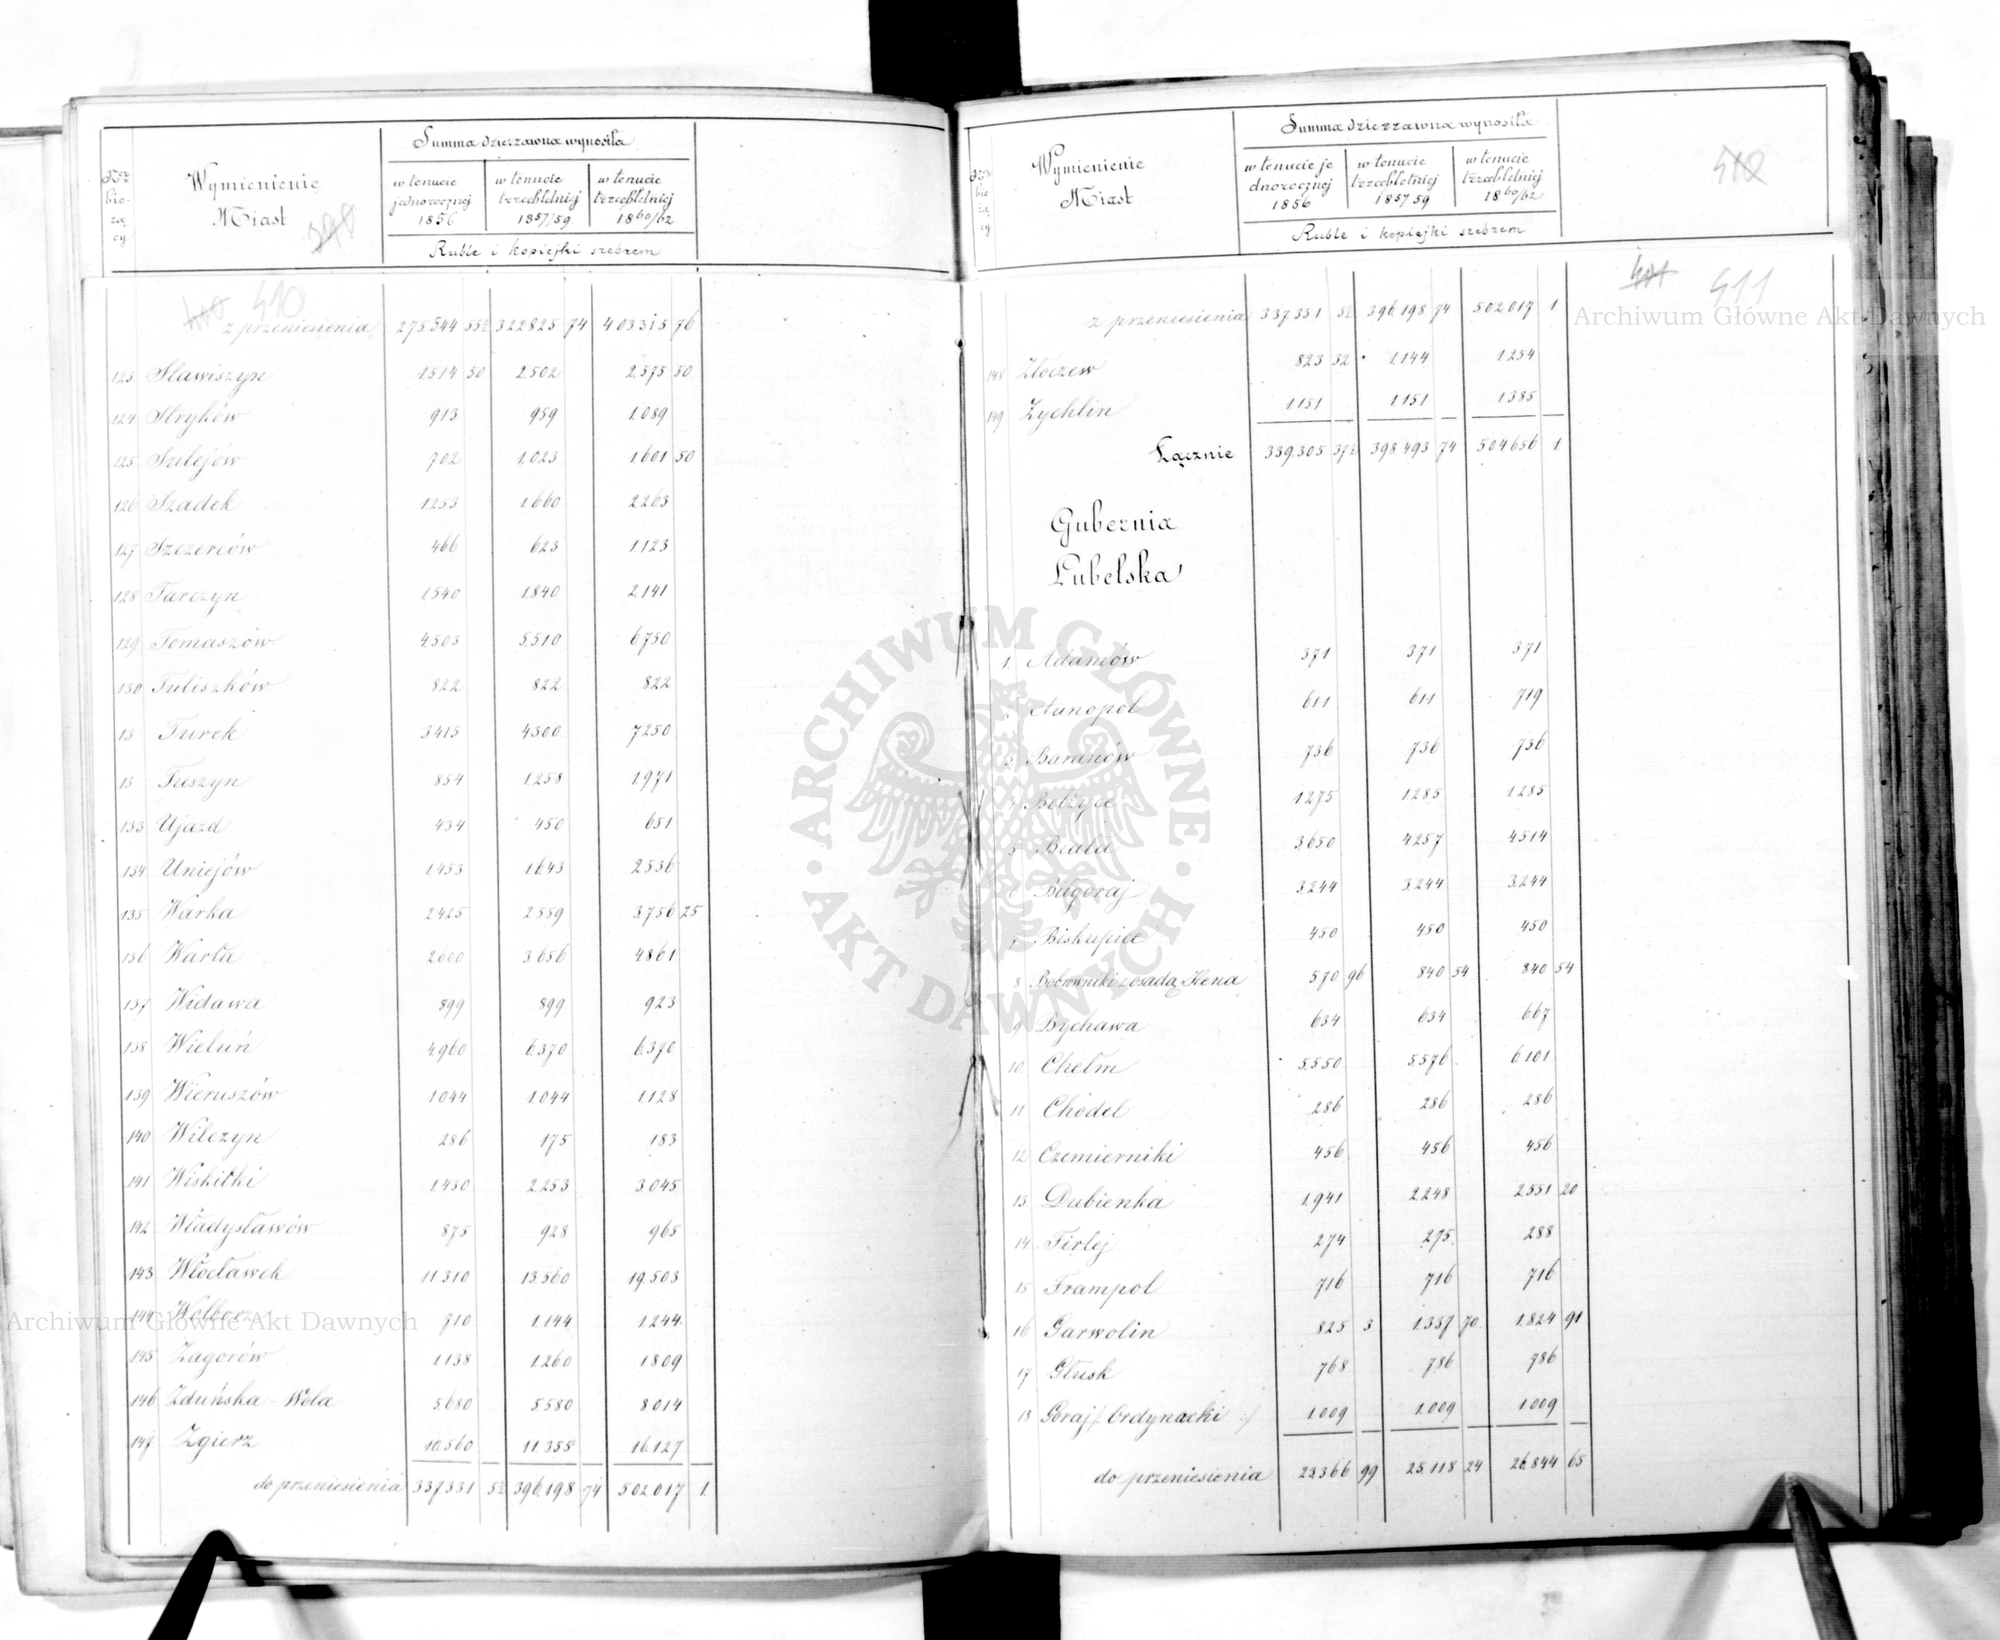 Nr bieżący
Wymienienie Miast
Summa dzierzawna wynosiła
w tenucie jednorocznej 1856
w tenucie trzechletniej 1857/59
w tenucie trzechletniej 1860/62
Ruble i kopiejki srebrem
410
z przeniesienia 275544 55½ 322825 74 403315 76
123 Stawiszyn 1514 50 2502 2575 50
124 Stryków 913 959 1089
125 Sulejów 702 1023 1601 50
126 Szadek 1253 1660 2263
127 Szczerców 466 623 1123
128 Tarczyn 1540 1840 2141
129 Tomaszów 4503 5510 6750
130 Tuliszków 822 822 822
13 Turek 3415 4300 7250
13 Tuszyn 854 1258 1971
133 Ujazd 434 450 651
134 Uniejów 1433 1643 2536
135 Warka 2425 2559 3756 25
136 Warta 2600 3656 4861
137 Widawa 899 899 923
138 Wieluń 4960 6370 6370
139 Wieruszów 1044 1044 1128
140 Wilczyn 286 175 183
141 Wiskitki 1430 2253 3045
142 Władysławów 875 928 965
143 Włocławek 11310 13560 19503
144 Wolborz 710 1144 1244
145 Zagorów 1138 1260 1809
146 Zduńska-Wola 5680 5580 8014
147 Zgierz 10560 11355 16127
do przeniesienia 337331 5½ 396198 74 502017 1
Archiwum Główne Akt Dawnych
Nr bieżący
Wymienienie Miast
Summa dzierzawna wynosiła
w tenucie jednorocznej 1856
w tenucie trzechletniej 1857/59
w tenucie trzechletniej 1860/62
Ruble i kopiejki srebrem
411
Archiwum Główne Akt Dawnych
z przeniesienia 337331 5½ 396198 74 502017 1
148 Złoczew 823 32 1144 1254
149 Zychlin 1151 1151 1385
Łącznie 339305 37½ 398493 74 504656 1
Gubernia
Lubelska
1 Adamów 371 371 371
Annopol 611 611 719
3 Baranów 736 736 736
4 Bełzyce 1275 1285 1285
5 Biała 3650 4257 4514
6 Biłgoraj 3244 3244 3244
7 Biskupice 450 450 450
8 Bobrowniki z osadą Kena 570 96 840 54 840 54
9 Bychawa 634 634 667
10 Chełm 5550 5576 6101
11 Chodel 286 286 286
12 Czemierniki 456 456 456
13 Dubienka 1941 2248 2551 20
14 Firlej 274 275 288
15 Frampol 716 716 716
16 Garwolin 825 3 1337 70 1824 91
17 Głusk 768 786 786
18 Goraj /: Ordynacki :/ 1009 1009 1009
do przeniesienia 23366 99 25118 24 26844 65
ARCHIWUM GŁÓWNE · AKT DAWNYCH ·